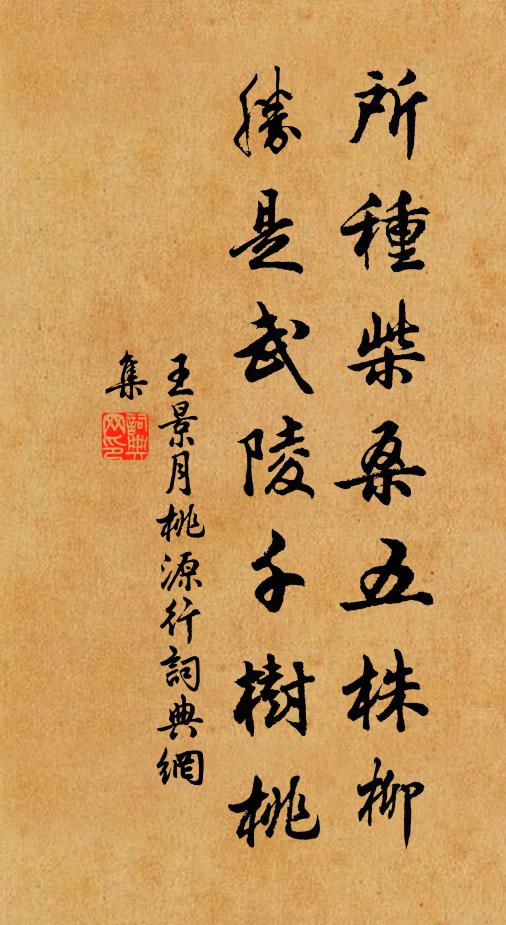 所種柴桑五株柳
勝是武陵千樹桃
王景月桃源行詞典網
集
詞典网印